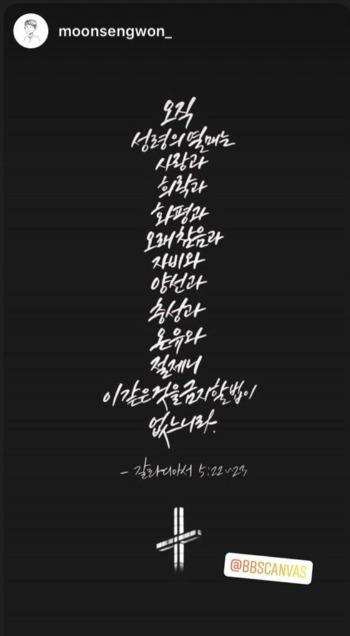 moonsengwon_
오직
성령의 열매는
사랑과
희락과
화평과
오래 참음과
자비와
양선과
충성과
온유와
절제니
이같은것을금지할법이
없느니라.
- 갈라디아서 5:22~23
@BBSCANVAS